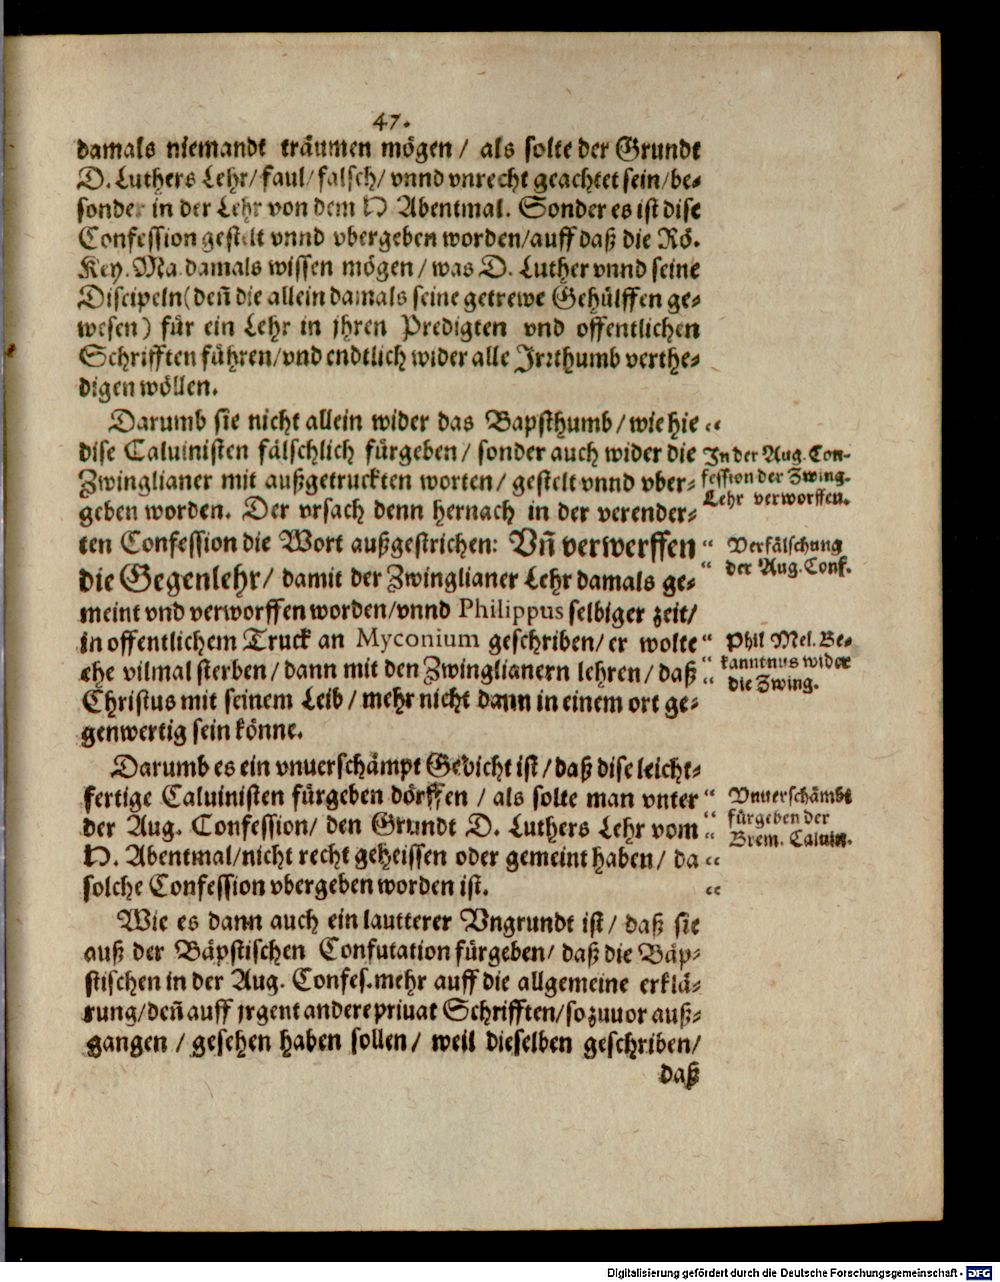 47.
damals niemandt träumen mögen / als solte der Grundt
D. Luthers Lehr / faul / falsch / vnnd vnrecht geachtet sein / be-
sonder in der Lehr von dem H Abentmal. Sonder es ist dise
Confession gestelt vnnd vbergeben worden / auff daß die Rö.
Key. Ma damals wissen mögen / was D. Luther vnnd seine
Discipeln (deñ die allein damals seine getrewe Gehülffen ge-
wesen) für ein Lehr in jhren Predigten vnd offentlichen
Schrifften führen / vnd endtlich wider alle Irrthumb verthe-
digen wöllen.
Darumb sie nicht allein wider das Bapsthumb / wie hie
dise Caluinisten fälschlich fürgeben / sonder auch wider die
Zwinglianer mit außgetruckten worten / gestelt vnnd vber-
geben worden. Der vrsach denn hernach in der verender-
ten Confession die Wort außgestrichen: Vñ verwerffen
die Gegenlehr / damit der Zwinglianer Lehr damals ge-
meint vnd verworffen worden / vnnd Philippus selbiger zeit /
in offentlichem Truck an Myconium geschriben / er wolte
ehe vilmal sterben / dann mit den Zwinglianern lehren / daß
Christus mit seinem Leib / mehr nicht dann in einem ort ge-
genwertig sein könne.
Darumb es ein vnuerschämpt Gedicht ist / daß dise leicht-
fertige Caluinisten fürgeben dörffen / als solte man vnter
der Aug. Confession / den Grundt D. Luthers Lehr vom
H. Abentmal / nicht recht geheissen oder gemeint haben / da
solche Confession vbergeben worden ist.
Wie es dann auch ein lautterer Vngrundt ist / daß sie
auß der Bäpstischen Confutation fürgeben / daß die Bäp-
stischen in der Aug. Confes. mehr auff die allgemeine erklä-
rung / deñ auff jrgent andere priuat Schrifften / so zuuor auß-
gangen / gesehen haben sollen / weil dieselben geschriben /
daß
In der Aug. Con-
fession der Zwing.
Lehr verworffen.
Verfälschung
der Aug. Conf.
Phil Mel. Be-
kanntnus wider
die Zwing.
Vnuerschämbt
fürgeben der
Brem. Caluin.
Digitalisierung gefördert durch die Deutsche Forschungsgemeinschaft - DFG